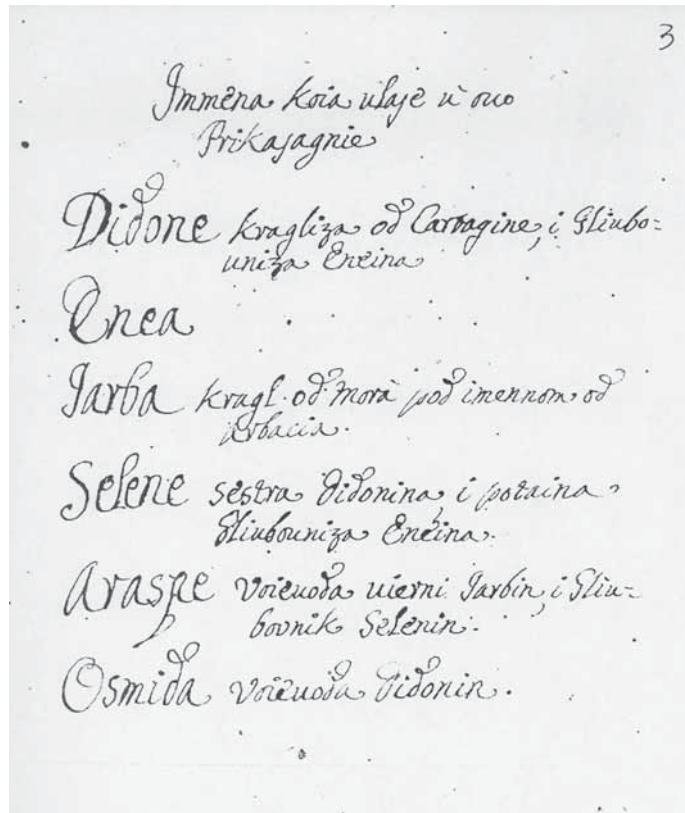 3
Immena koia ulaze ù ovo
Prikazagnie
Didone kragliza od Cartagine, i Gliubo=
uniza Eneina
Enea
Jarba kragl. od Morà pod imennom od
Arbacia.
Selene sestra Didonina, i potaina
Gliubouniza Eneina.
Araspe Voievoda vierni Jarbin, i Gliu=
bovnik Selenin.
Osmida Voievoda Didonin.